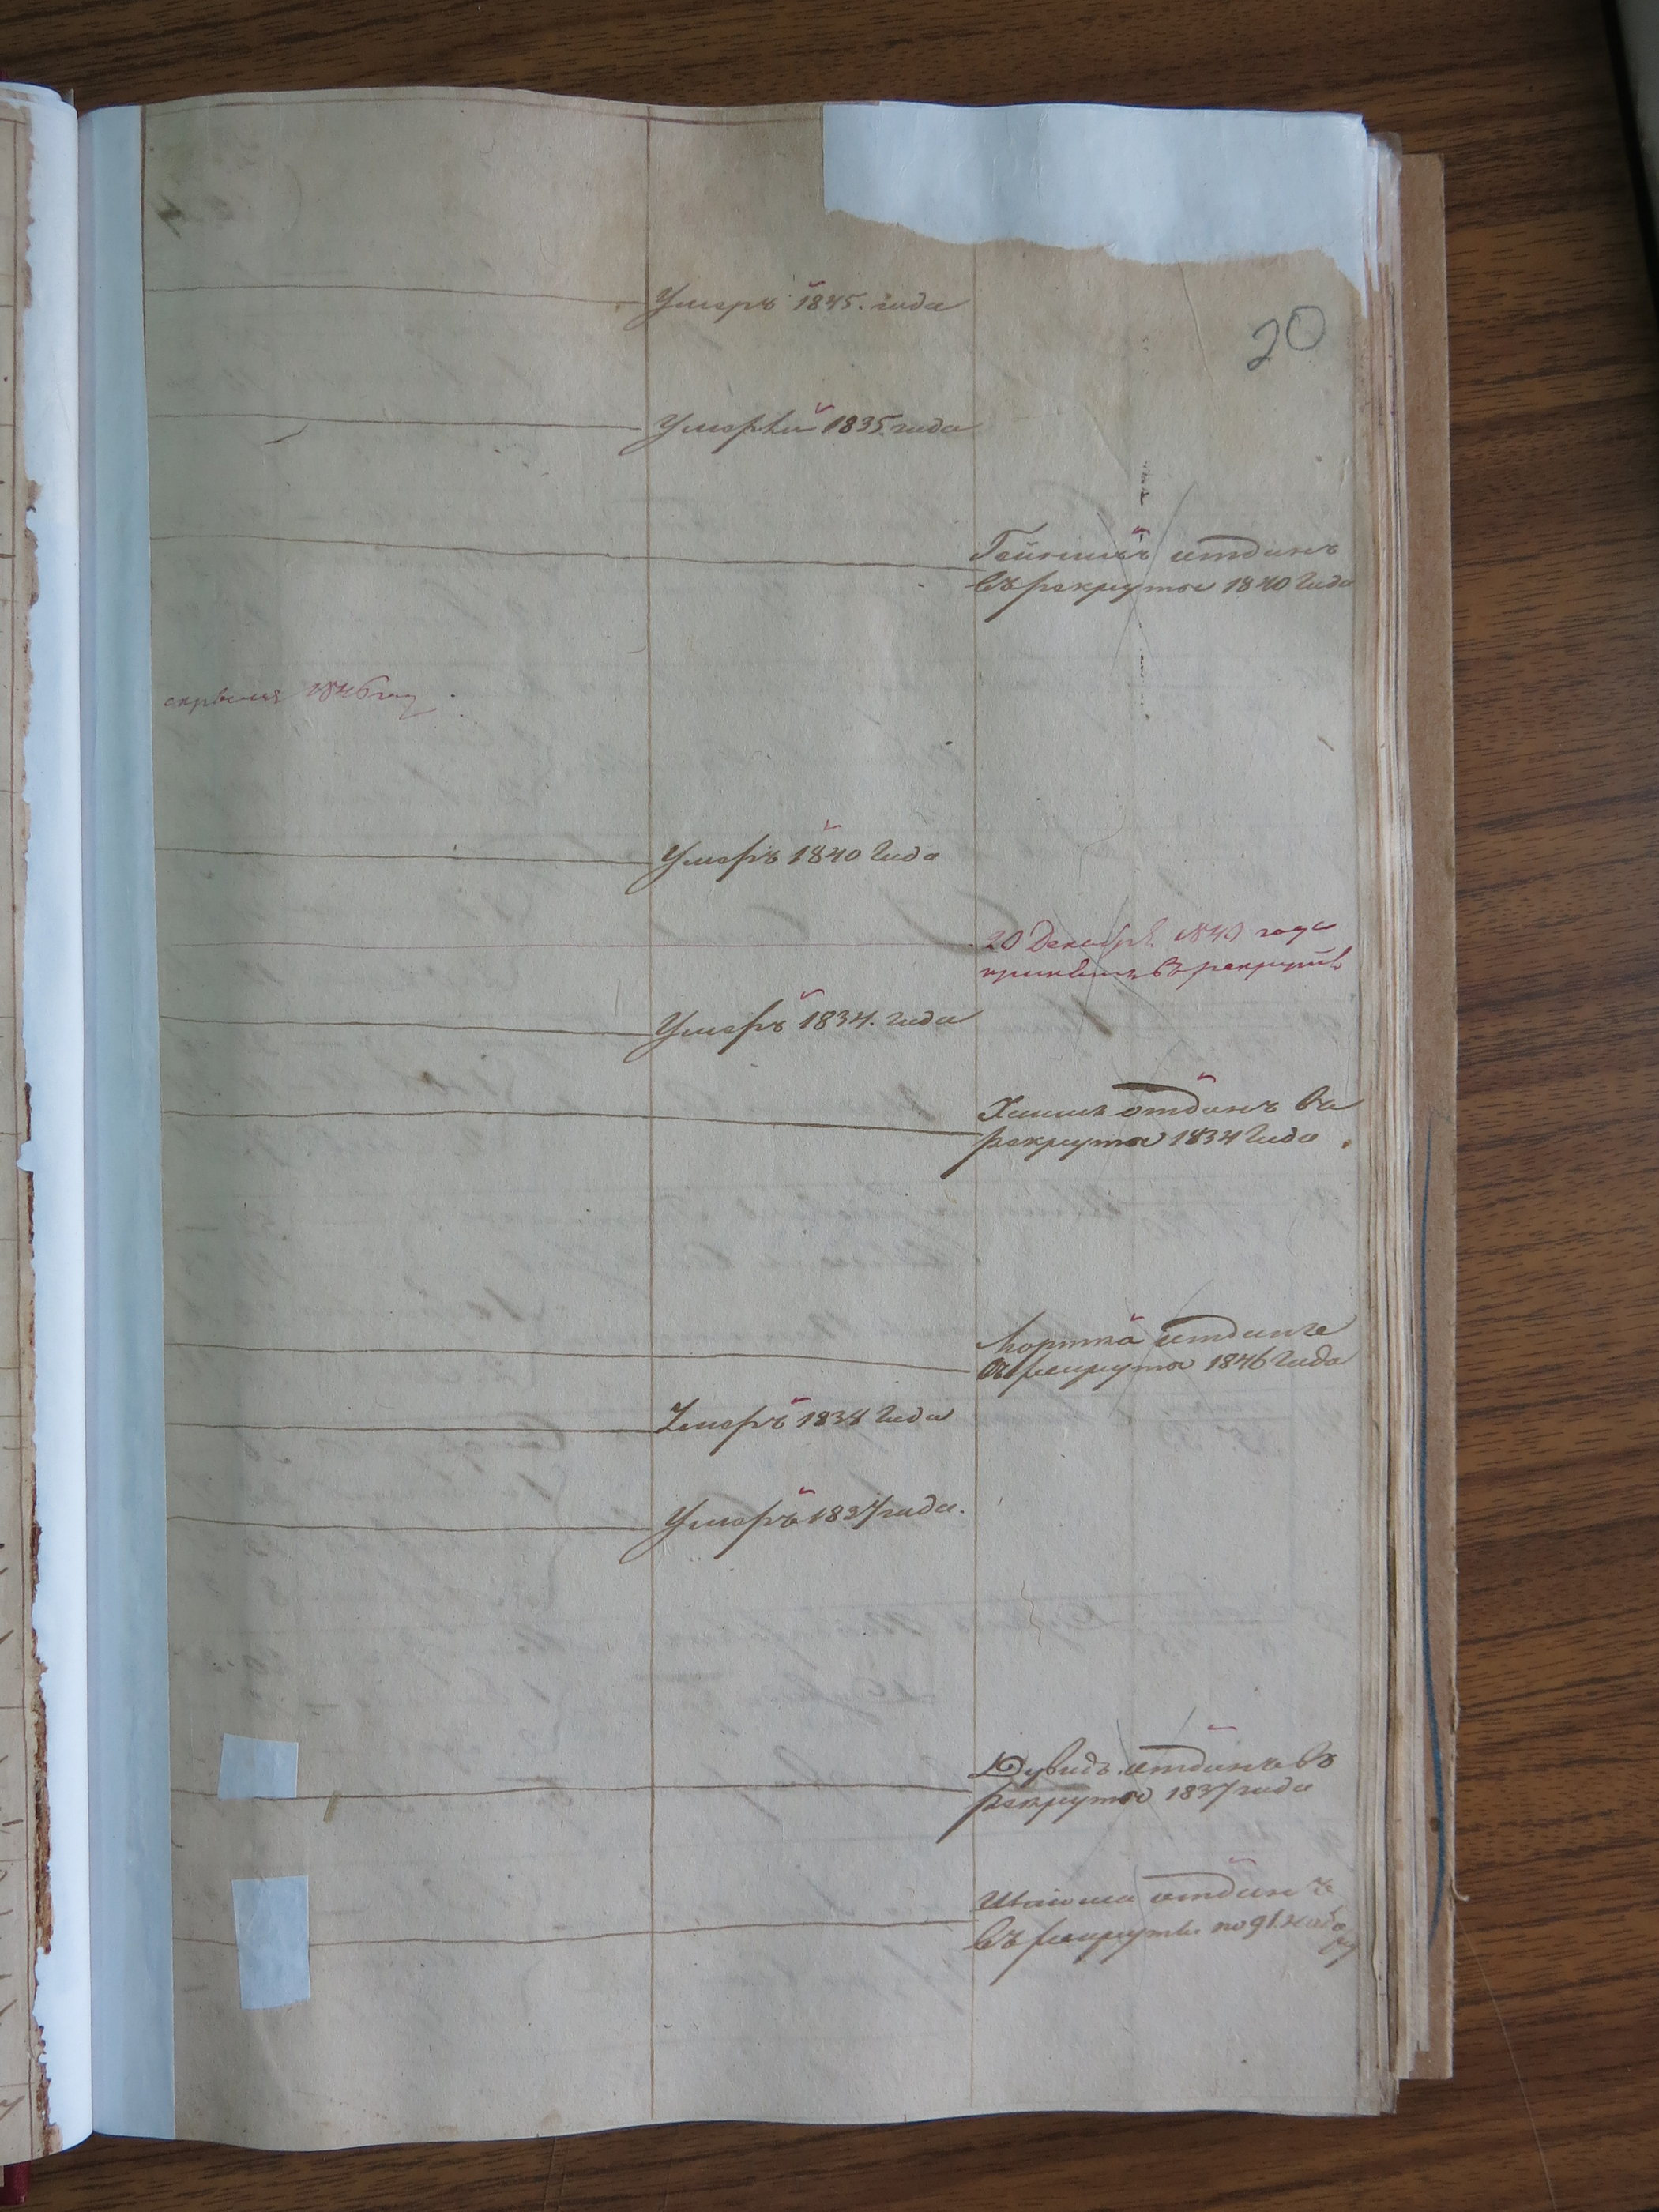 20
Умеръ 1845. года
Умеръ 1835 года
отданъ
въ рекруты 1840 года
1846 году
Умеръ 1840 года
20 Декабря 1840 года
принятъ в рекруты
Умеръ 1834. года
отданъ въ
рекруты 1834 года
отданъ
въ рекруты 1846 года
Умеръ 1838 года
Умеръ 1837 года.
Дувидъ отданъ въ
рекруты 1837 года
отданъ
въ рекруты по 91. набо
ру